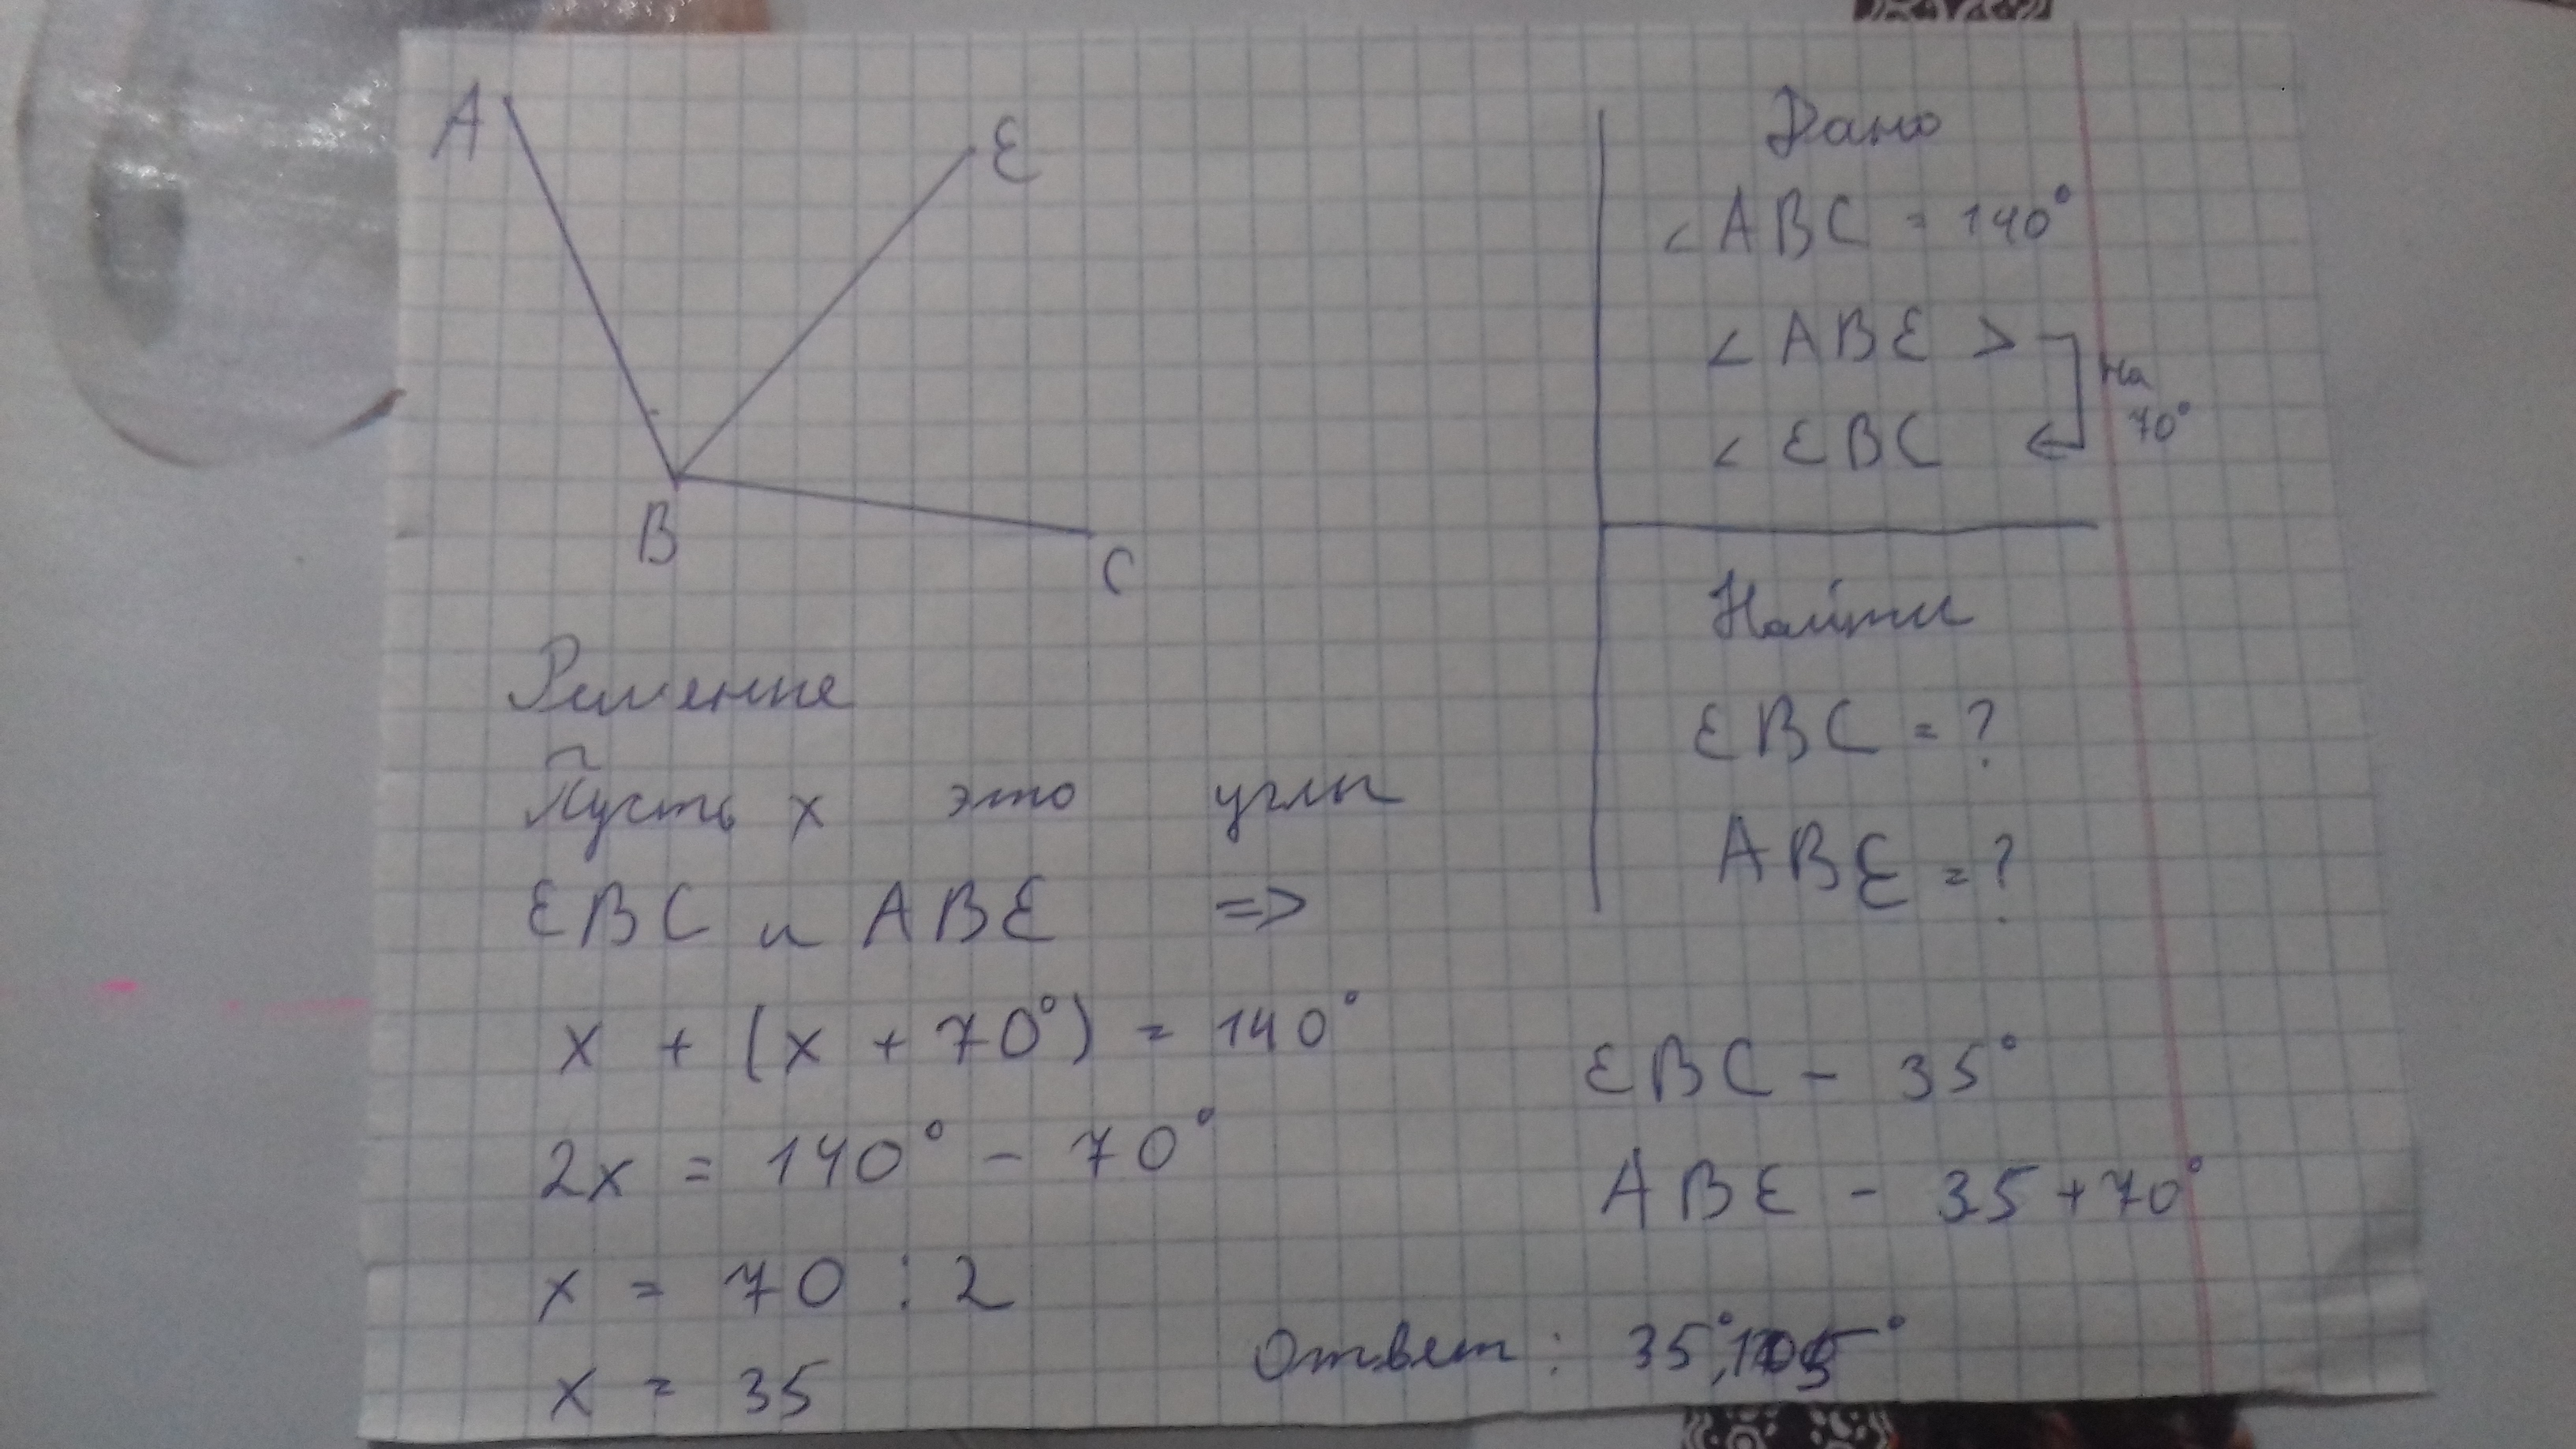 A
E
B
C
Дано
<ABC = 140°
<ABE >
<EBC
на
70°
Найти
EBC = ?
ABE = ?
Решение
Пусть x это углы
EBC и ABE =>
x + (x + 70°) = 140°
2x = 140° - 70°
x = 70 : 2
x = 35
EBC - 35°
ABE - 35 + 70°
Ответ: 35°, 105°